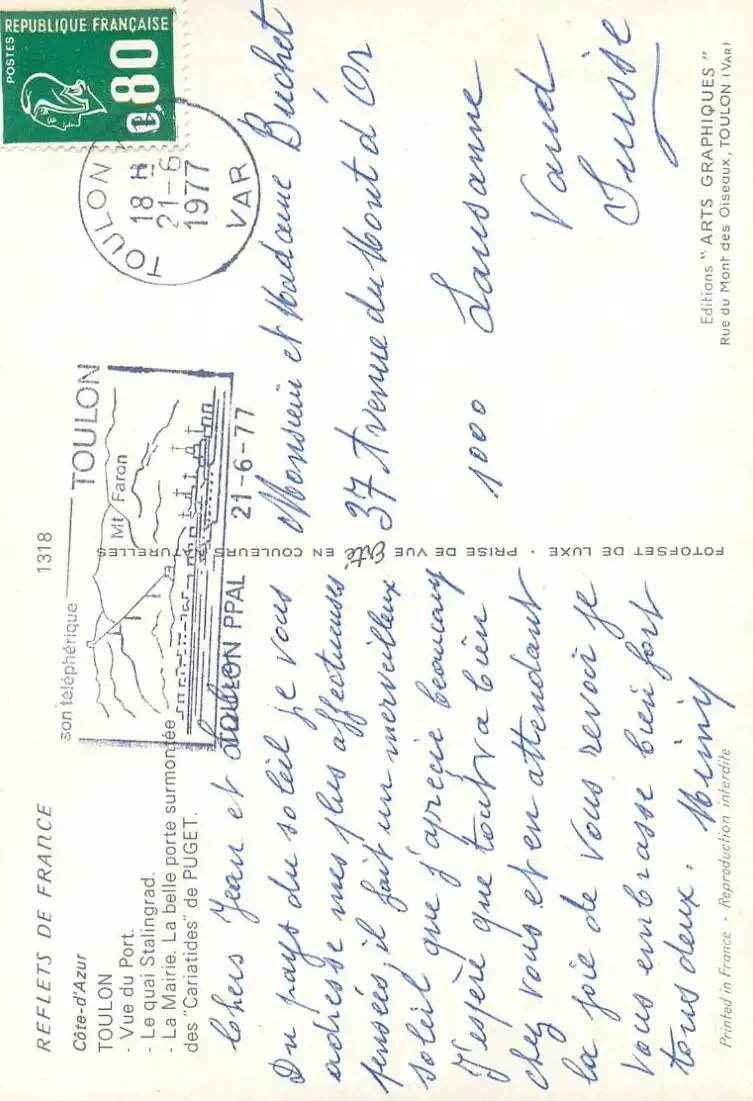 REFLETS DE FRANCE
Côte-d'Azur
TOULON
- Vue du Port.
- Le quai Stalingrad.
- La Mairie. La belle porte surmontée
des "Cariatides" de PUGET.
1318
Chers Jean et
Du pays du soleil je vous
adresse mes plus affectueuses
pensées, il fait un merveilleux
soleil que j'aprécie beaucoup
J'espère que tout va bien
chez vous et en attendant
la joie de vous revoir je
vous embrasse bien fort
tous deux. Mimy
Printed in France - Reproduction interdite
FOTOFSET DE LUXE • PRISE DE VUE Erté EN COULEURS NATURELLES
REPUBLIQUE FRANÇAISE
POSTES
0,80
TOULON
18 H
21-6
1977
VAR
son téléphérique
TOULON
Mt Faron
TOULON PPAL
21-6-77
Monsieur et Madame Buchet
37 Avenue du Mont d'Or
1000 Lausanne
Vaud
Suisse
Editions "ARTS GRAPHIQUES"
Rue du Mont des Oiseaux, TOULON (VAR)